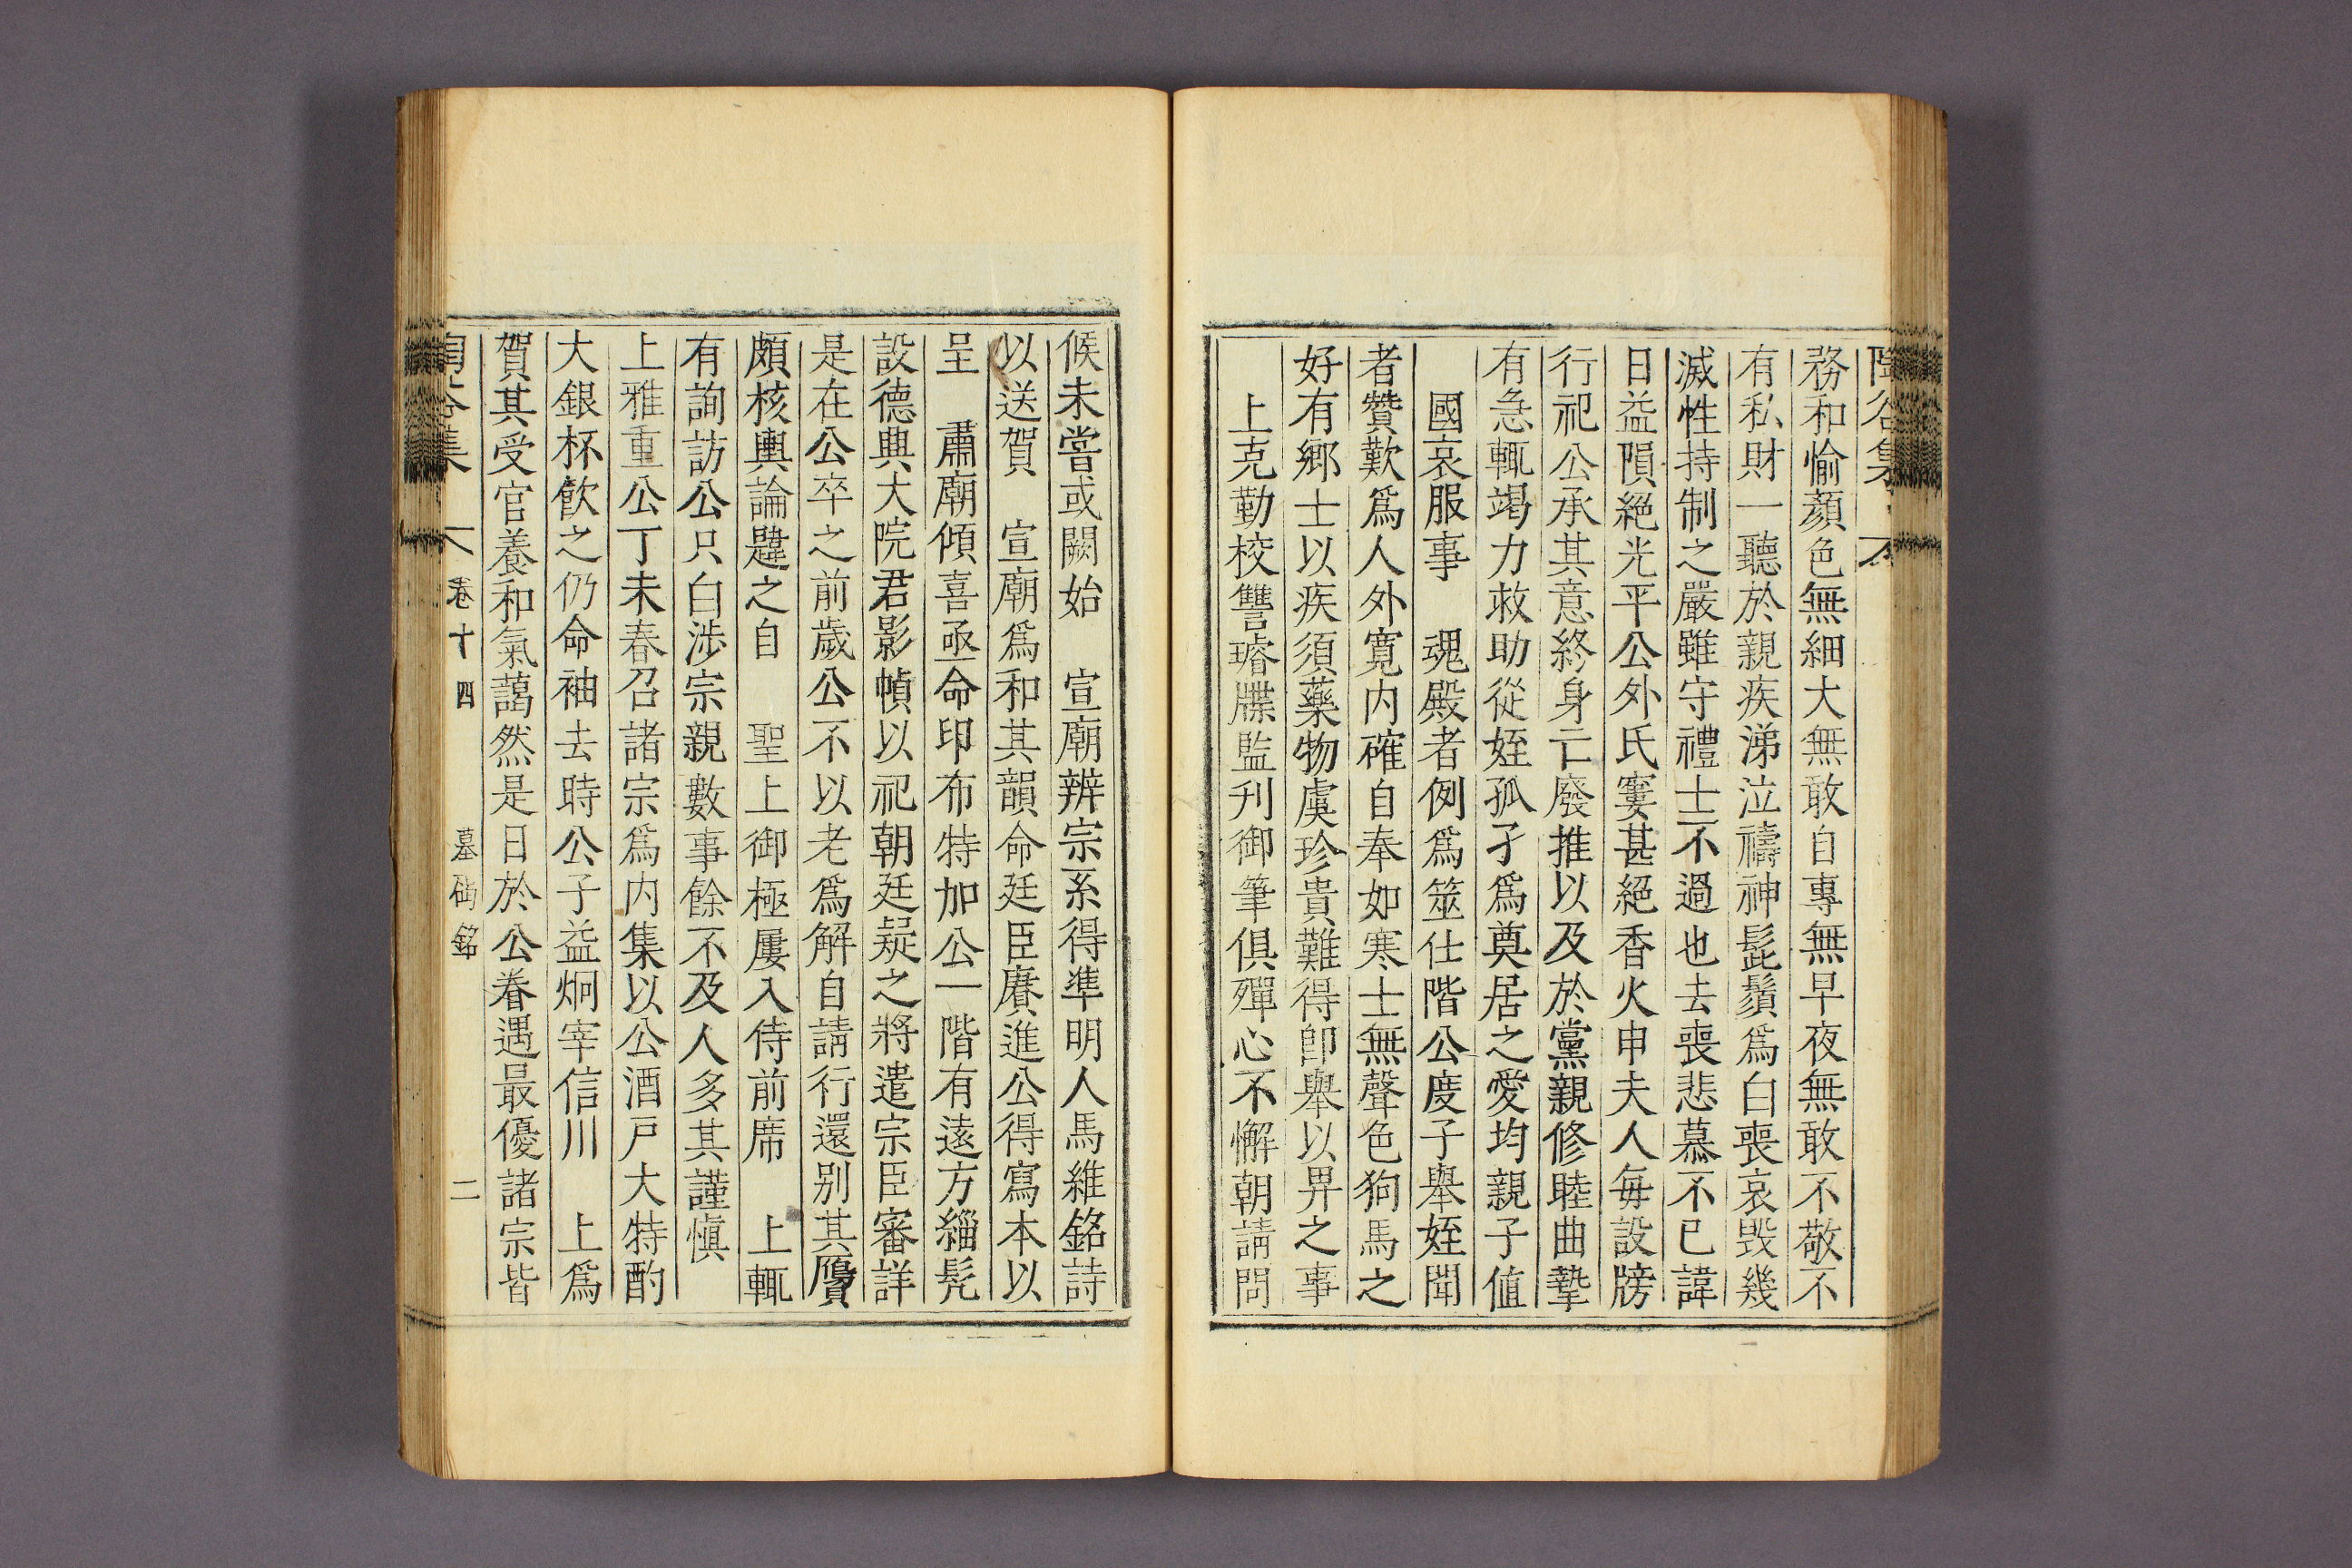 務和愉顏色無細大無敢自專無早夜無敢不敬不
有私財一聽於親疾涕泣禱神髭鬚爲白喪哀毁幾
滅性持制之嚴雖守禮士不過也去喪悲慕不已諱
日益隕絕光平公外氏寠甚絕香火申夫人每設牓
行祀公承其意終身亡廢推以及於黨親修睦曲摯
有急輒竭力救助從姪孤孑爲奠居之愛均親子値
國哀服事　魂殿者例爲筮仕階公度子舉姪聞
者贊歎爲人外寬內確自奉如寒士無聲色狗馬之
好有鄉士以疾須藥物虞珍貴難得卽舉以畀之事
上克勤校讐璿牒監刋御筆俱殫心不懈朝請問
候未嘗或闕始　宣廟辨宗系得準明人馬維銘詩
以送賀　宣廟爲和其韻命廷臣賡進公得寫本以
呈　肅廟傾喜亟命印布特加公一階有遠方緇髡
設德興大院君影幀以祀朝廷疑之將遣宗臣審詳
是在公卒之前歲公不以老爲解自請行還别其贋
頗核輿論韙之自　聖上御極屢入侍前席　上輒
有詢訪公只白涉宗親數事餘不及人多其謹愼
上雅重公丁未春召諸宗爲內集以公酒戶大特酌
大銀杯飮之仍命袖去時公子益炯宰信川　上爲
賀其受官養和氣藹然是日於公眷遇最優諸宗皆
集　卷十四　墓碣銘　二